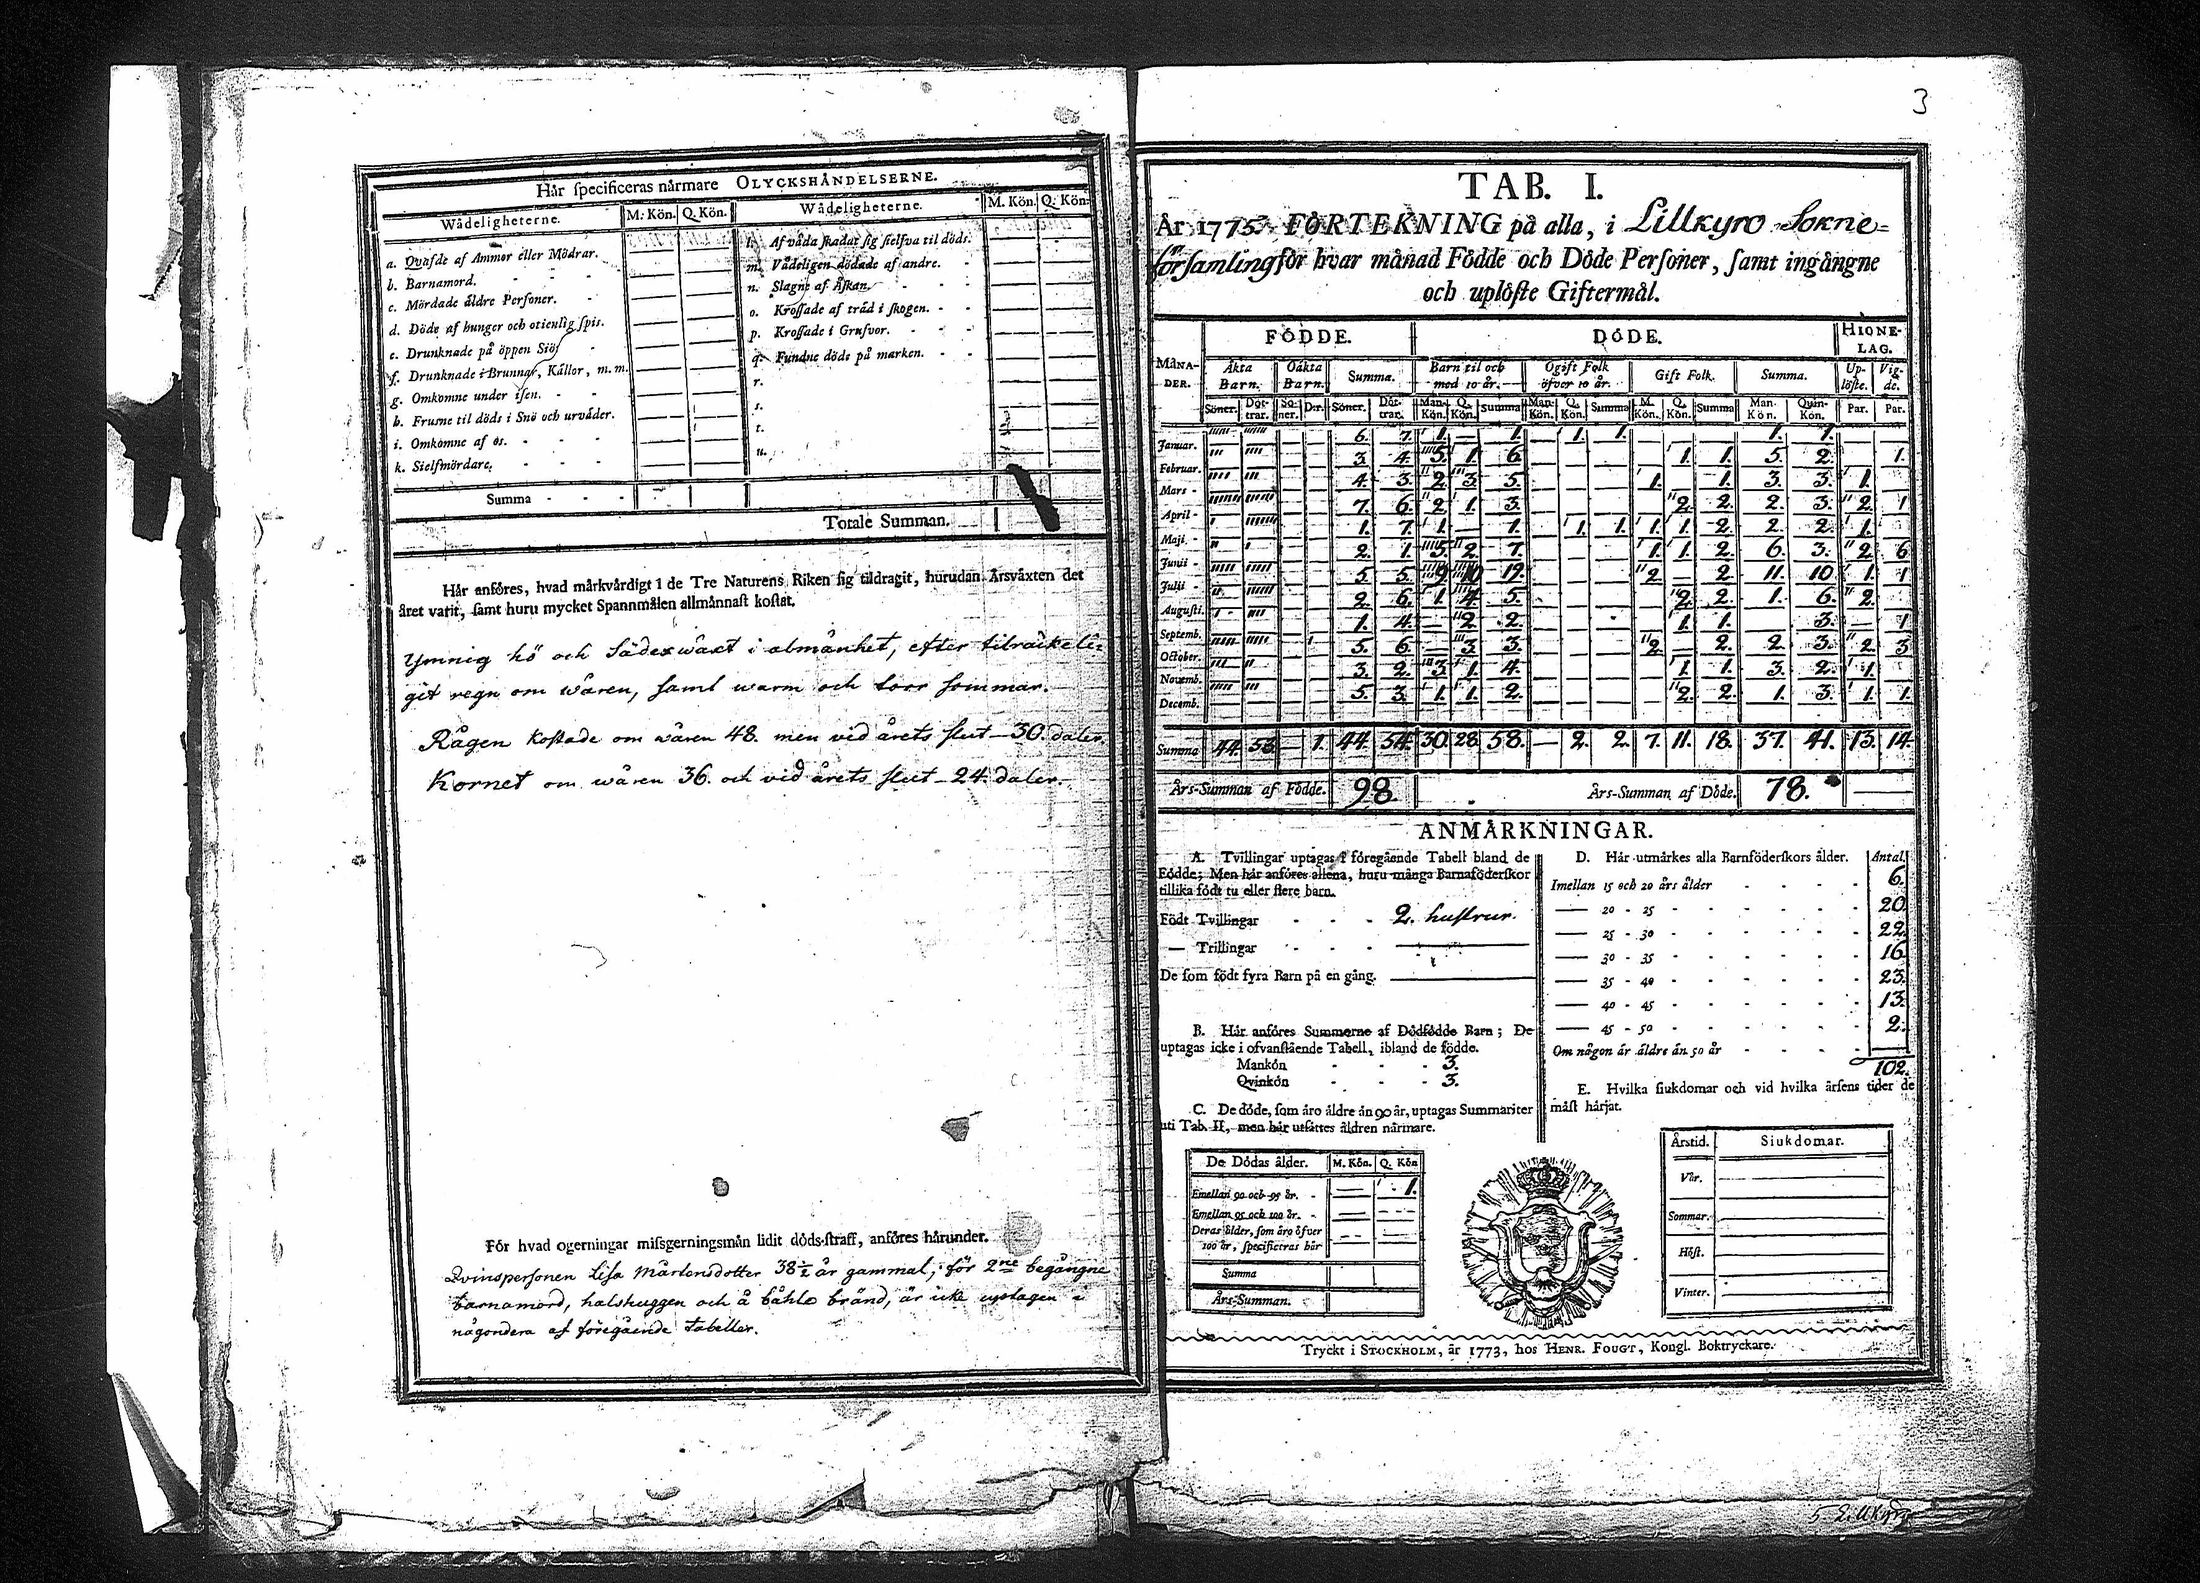 Här specificeras närmare OLYCKSHÄNDELSERNE.
Wådeligheterne. M. Kön. Q. Kön. Wådeligheterne. M. Kön. Q. Kön.
a. Qvafde af Ammor eller Mödrar.
b. Barnamord.
c. Mördade äldre Personer.
d. Döde af hunger och otienlig spis.
e. Drunknade på öppen Siö.
f. Drunknade i Brunnar, Källor, m. m.
g. Omkomne under isen.
h. Frusne til döds i Snö och urväder.
i. Omkomne af os.
k. Sielfmördare.
l. Af våda skadat sig sielfva til döds.
m. Vådeligen dödade af andre.
n. Slagne af Åskan.
o. Krossade af träd i skogen.
p. Krossade i Grufvor.
q. Fundne döde på marken.
r.
s.
t.
u.
Summa
Totale Summan.
Här anföres, hvad märkvärdigt i de Tre Naturens Riken sig tildragit, hurudan Årsväxten det
året varit, samt huru mycket Spannmålen allmännast kostat.
Ymnig hö och Sädeswäxt i almänhet, efter tilräckeli=
git regn om wåren, samt warm och torr sommar.
Rågen kostade om wåren 48. men vid årets slut 30. daler.
Kornet om wåren 36. och vid årets slut 24. daler.
För hvad ogerningar missgerningsmän lidit döds-straff, anföres härunder.
Qvinspersonen Lisa Mårtensdotter 38½ år gammal, för 2ne begångne
barnamord, halshuggen och å båhle bränd, är icke uptagen i
någondera af föregående Tabeller.
3
TAB. I.
År 1775. FÖRTEKNING på alla, i Lillkyro Sokne=
församling för hvar månad Födde och Döde Personer, samt ingångne
och uplöste Giftermål.
MÅNA-DER. FÖDDE. DÖDE. HIONE-LAG.
Äkta Barn. Oäkta Barn. Summa. Barn til och med 10 år. Ogift Folk öfver 10 år. Gift Folk. Summa. Up-löste. Vig-de.
Söner. Döt-trar. Sö-ner. D:r. Söner. Döt-trar. Man-Kön. Q. Kön. Summa Man-Kön. Q. Kön. Summa M. Kön. Q. Kön. Summa Man-Kön. Quin-Kön. Par. Par.
Januar. 6. 7. 1. — 1. — 1. 1. — — — 1. 1.
Februar. 3. 4. 5. 1. 6. — — — — 1. 1. 5. 2. 1.
Mars 4. 3. 2. 3. 5. 1. 1. 3. 3. 1.
April 7. 6. 2. 1. 3. — — — — 2. 2. 2. 3. 2. 1
Maji 1. 7. 1. — 1. — 1. 1. 1. 1. 2. 2. 2. 1.
Junii 2. 1. 5. 2. 7. — — — 1. 1. 2. 6. 3. 2. 6
Julii 5. 5. 9. 10. 19. — — — 2. — 2. 11. 10. 1. 1
Augusti. 2. 6. 1. 4. 5. — — — — 2. 2. 1. 6. 2.
Septemb. 1. 4. — 2. 2. — — — — 1. 1. 3. — 1
October. 5. 6. — 3. 3. — — — 2. — 2. 2. 3. 2. 3
Novemb. 3. 2. 3. 1. 4. — — — — 1. 1. 3. 2. 1.
Decemb. 5. 3. 1. 1. 2. — — — — 2. 2. 1. 3. 1. 1.
Summa 44. 53. — 1. 44. 54. 30. 28. 58. — 2. 2. 7. 11. 18. 37. 41. 13. 14.
Års-Summan af Födde. 98. Års-Summan af Döde. 78.
ANMÄRKNINGAR.
A. Tvillingar uptagas i föregående Tabell bland de
Födde; Men här anföres allena, huru många Barnaföderskor
tillika födt tu eller flere barn.
Födt Tvillingar 2. hustrur.
— Trillingar
De som födt fyra Barn på en gång.
B. Här anföres Summorne af Dödfödde Barn; De
uptagas icke i ofvanstående Tabell, ibland de födde.
Mankön 3.
Qvinkön 3.
C. De döde, som äro äldre än 90 år, uptagas Summariter
uti Tab. II, men här utsättes åldren närmare.
De Dödas ålder. M. Kön. Q. Kön
Emellan 90 och 95 år. — 1.
Emellan 95 och 100 år.
Deras ålder, som äro öfver
100 år, specificeras här
Summa
Års-Summan.
D. Här utmärkes alla Barnföderskors ålder. Antal.
Imellan 15 och 20 års ålder 6.
— 20 - 25 20.
— 25 - 30 22.
— 30 - 35 16.
— 35 - 40 23.
— 40 - 45 13.
— 45 - 50 2.
Om någon är äldre än 50 år
102.
E. Hvilka siukdomar och vid hvilka årsens tider de
mäst härjat.
Årstid. Siukdomar.
Vår.
Sommar.
Höst.
Vinter.
Tryckt i STOCKHOLM, år 1773, hos HENR. FOUGT, Kongl. Boktryckare.